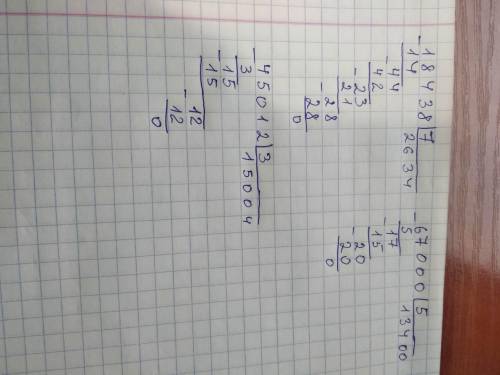 -18438|7
14 2634
-44
42
-23
21
-28
28
0
-67000|5
5 13400
-17
15
-20
20
0
-45012|3
3 15004
-15
15
-12
12
0